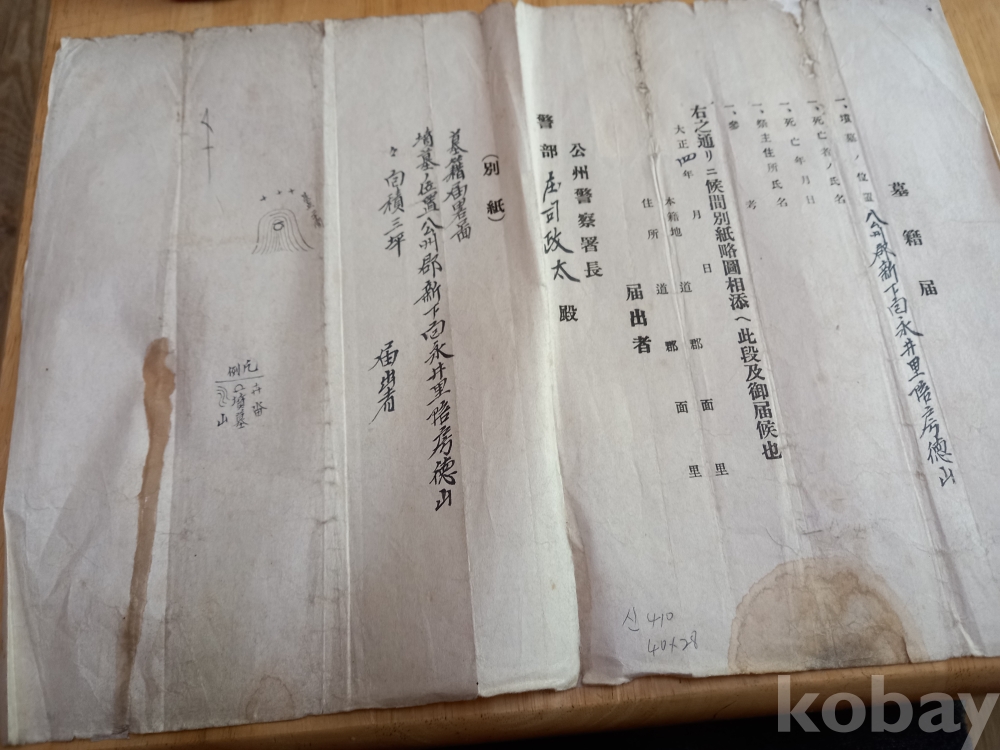 墓籍届
一、墳墓ノ位置 公州郡新下面永井里陪房德山
一、死亡者ノ氏名
一、死亡年月日
一、祭主住所氏名
一、參考
右之通リニ候間別紙略圖相添ヘ此段及御届候也
大正四年 月 日
本籍地 道 郡 面 里
住所 道 郡 面 里
届出者
公州警察署長
警部 庄司政太 殿
(別紙)
墓籍届畧圖
墳墓ノ位置公州郡新下面永井里陪房德山
〃面積三坪
届出者
凡例
墳墓
山
신 410
40x28
kobay